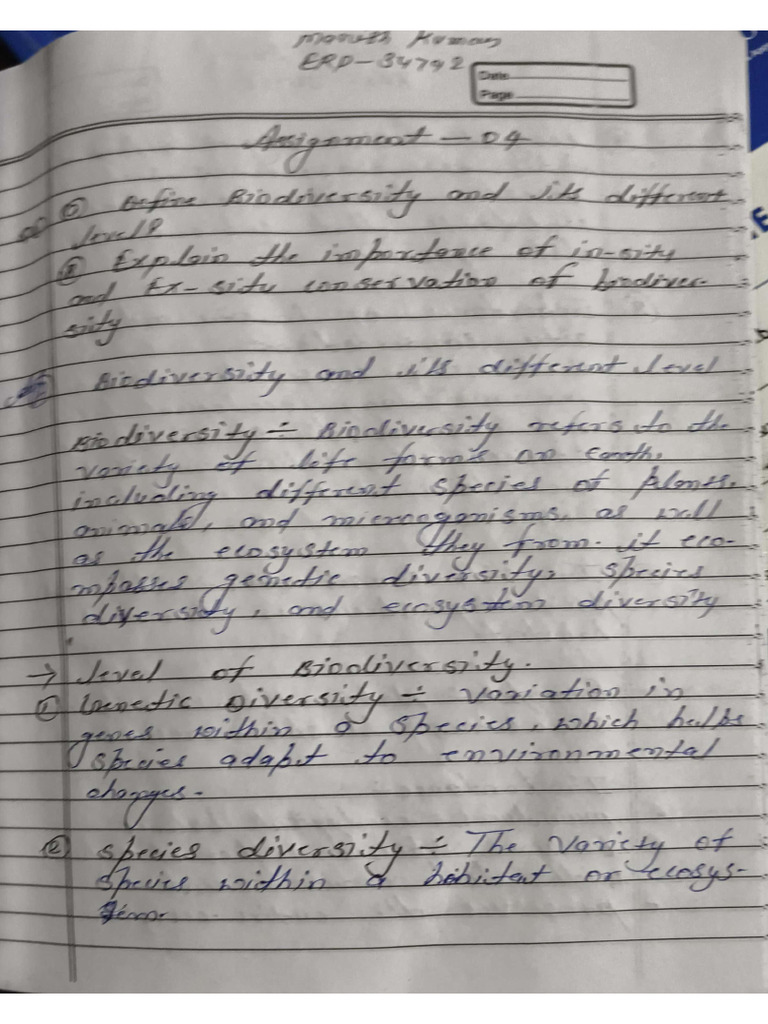 Kumar
ERP-34792
Date
Page
Assignment - 04
① Define Biodiversity and its different
level?
② Explain the importance of in-sity
and Ex-sity conservation of biodiver-
sity
Biodiversity and its different level
Biodiversity ÷ Biodiversity refers to the
variety of life forms on Earth,
including different species of plants,
animals, and microoganisms, as well
as the ecosystem they from. it eco-
mpasses genetic diversity, species
diversity, and ecosystem diversity
→ level of Biodiversity.
① Genetic Diversity ÷ Variation in
genes within a species, which helps
species adapt to environmental
changes.
② species diversity ÷ The variety of
species within a habitat or ecosys-
tem.